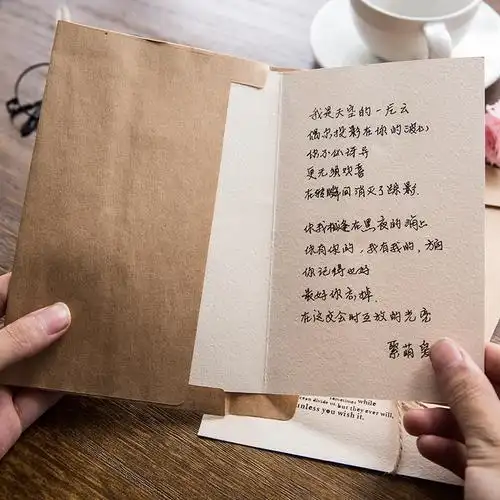 我是天空的一片云
偶尔投影在你的波心
你不必讶异
更无须欢喜
在转瞬间消灭了踪影
你我相逢在黑夜的海上
你有你的，我有我的，方向
你记得也好
最好你忘掉
在这交会时互放的光亮
sometimes while
ocean divide us, but they ever will,
unless you wish it.